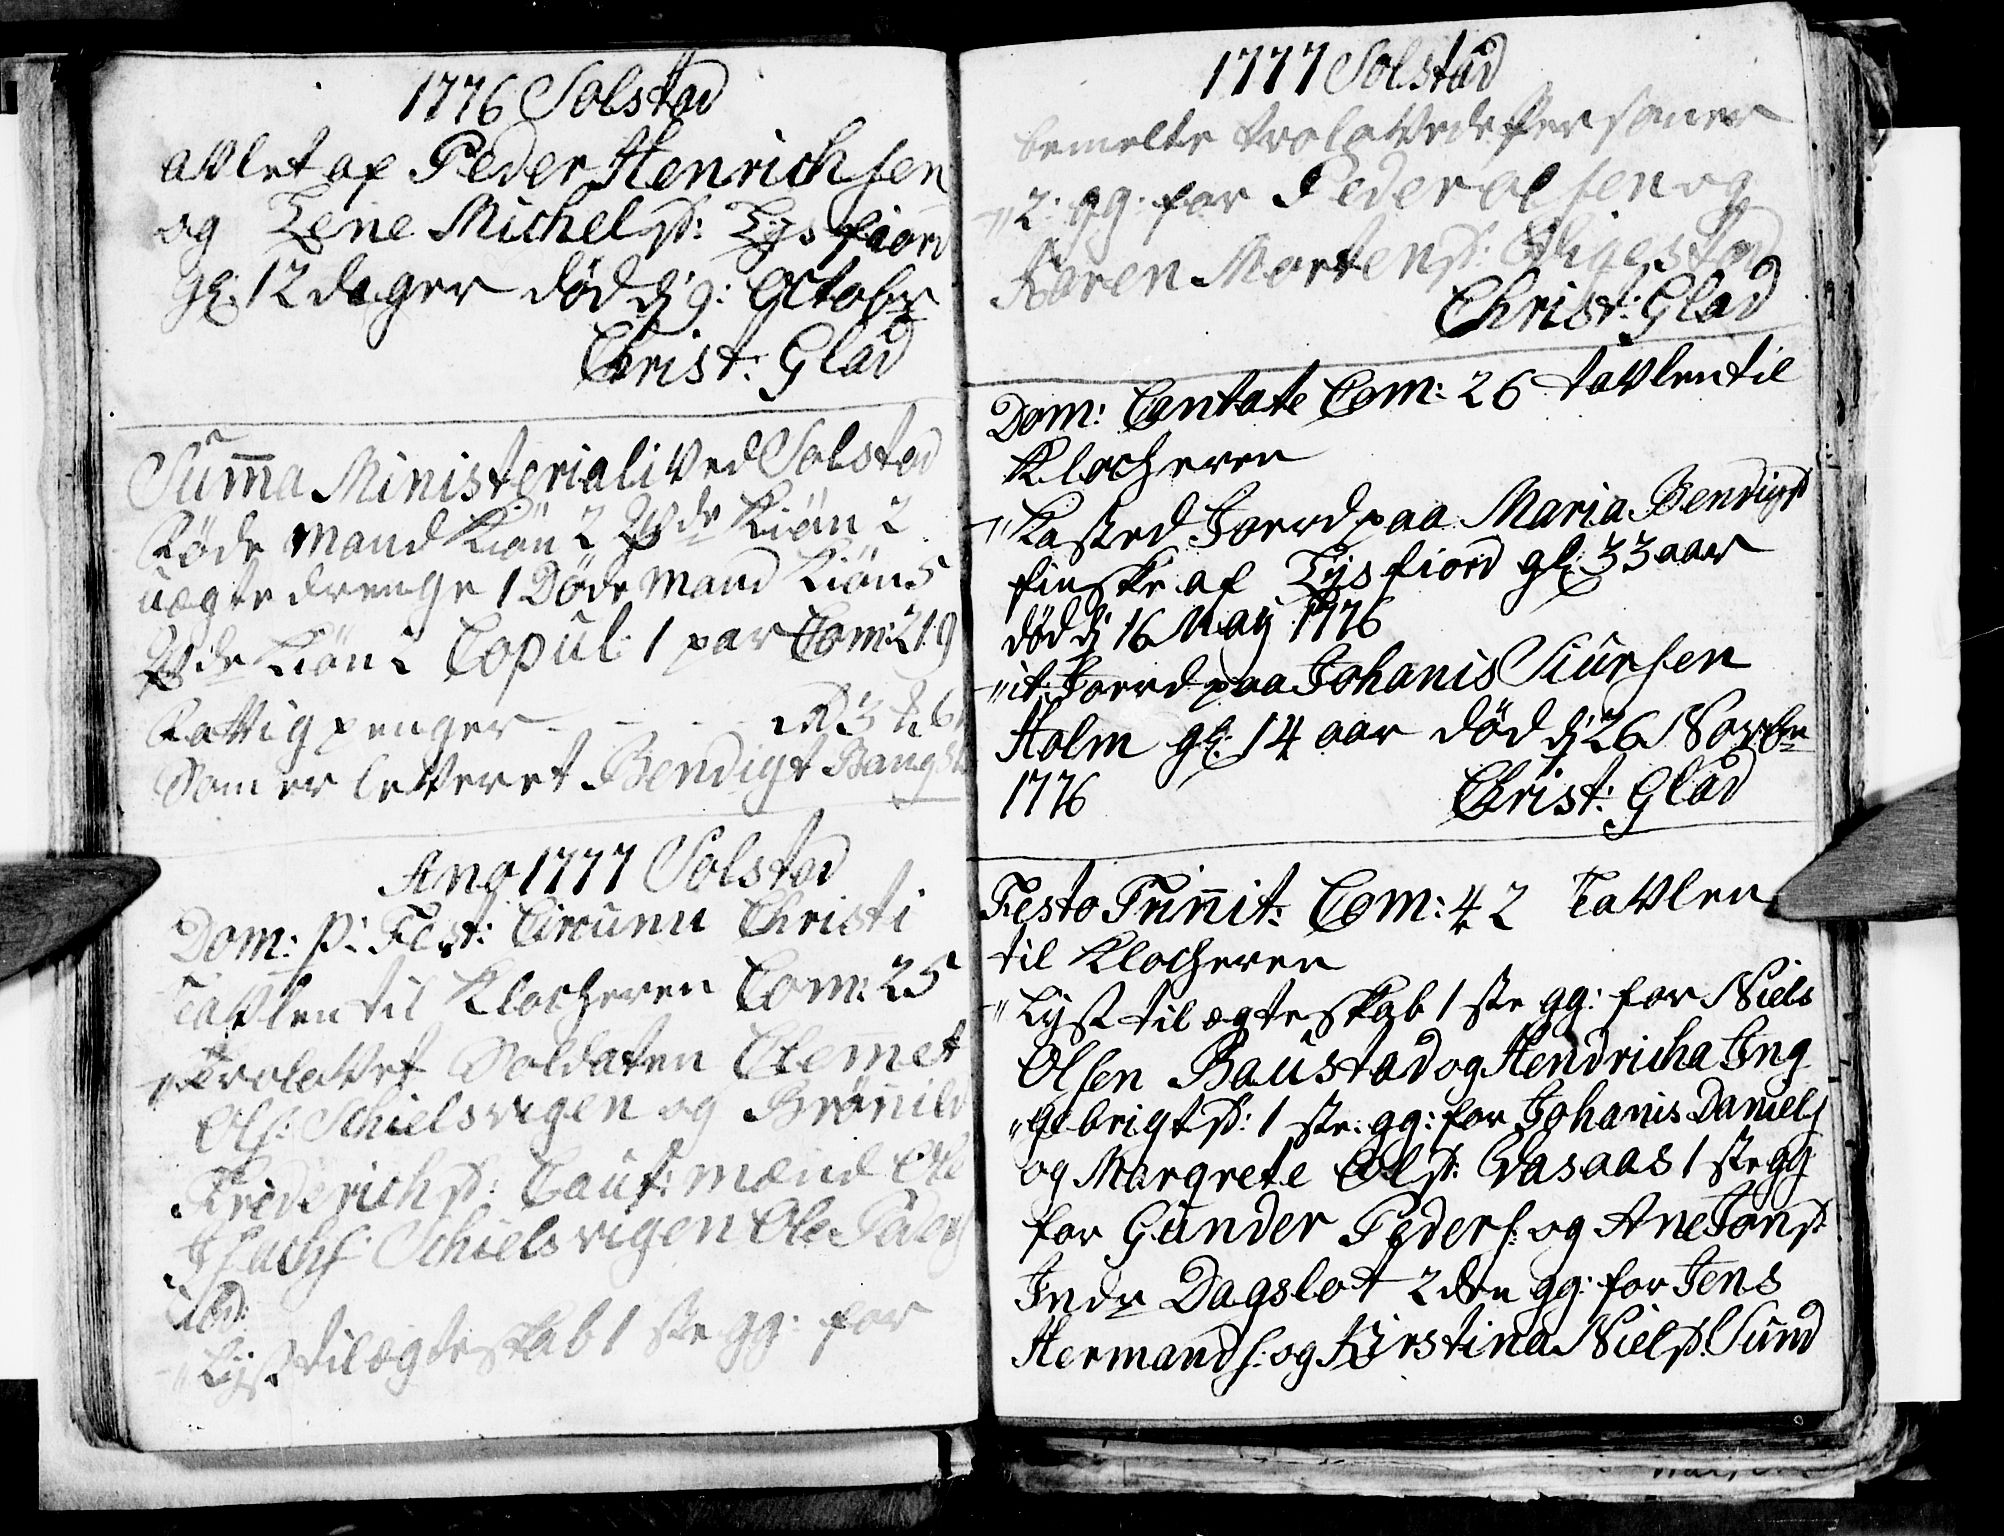 1776 Solstad
avlet af Peder Henrichsen
og Lene Michelsd: Lysfiord
gl: 12 dager død dj 9: Octobr
Christ: Glad
Summa Ministeriali ved Solstad
Føde Mand Kiøn 2 Qvde Kiøn 2
uægte drenge 1 Døde Mand Kiøn 5
Qvde Kiøn 2 Copul: 1 par Com: 219
Fattig penger - - -
Som er leveret Bendigt
Ano 1777 Solstad
Dom: p: Fest: Circumc Christi
Tavlen til Klocheren Com: 25
" Trolovet Soldaten Clemet
Ols: Schielsvigen og Brønnild
Friderichsd: Caut: mænd Ole
Isachs: Schielsvigen Ole
ibd:
" Lyst til ægteskab 1 ste gg: for
1777 Solstad
bemelte trolovede Personer
" 2: gg: for Peder Olsen og
Karen Mortensd:
Christ: Glad
Dom: Cantate Com: 26 tavlen til
Klocheren
" Kasted Joerd paa Maria Bendigtsd
finske af Lysfiord gl: 33 aar
død dj 16 May 1776
" it: Joerd paa Johanis Siursen
Holm gl: 14 aar død dj 26 Novbr
1776 Christ: Glad
Festo Trinnit: Com: 42 Tavlen
til Klocheren
" Lyst til ægteskab 1 ste gg: for Niels
Olsen Baustad og Hendricha Ing
" gebrigtsd: 1 ste: gg: for Johanis Daniels
og Margrete Olsd: Vasaas 1 ste gg
for Gunder Peders: og Ane Jonsd
Indr Dagslot 2den gg: for Jens
Hermands: og Kirstina Nielsd: Sund